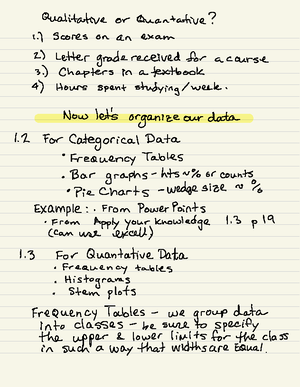 Qualitative or Quantative?
1.) Scores on an exam
2) Letter grade received for a course
3.) Chapters in a textbook
4) Hours spent studying/week.
Now let's organize our data
1.2 For Categorical Data
• Frequency Tables
• Bar graphs - hts ~ % or counts
• Pie Charts - wedge size ~ %
Example: • From PowerPoints
• From Apply your Knowledge 1.3 p19
(can use excell)
1.3 For Quantative Data
• Frequency tables
• Histograms
• Stem plots
Frequency Tables - we group data
into classes - be sure to specify
the upper & lower limits for the class
in such a way that widths are Equal.